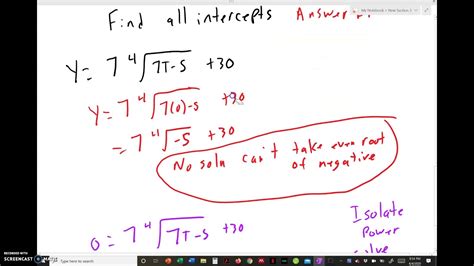 Find all intercepts Answer
Y = 7 ∜(7T-5) +30
Y = 7 ∜(7(0)-5) +30
= 7 ∜(-5) +30
No soln can't take even root
of negative
Isolate
Power
0 = 7 ∜(7T-5) +30
solve
RECORDED WITH
SCREENCAST MATIC
Type here to search